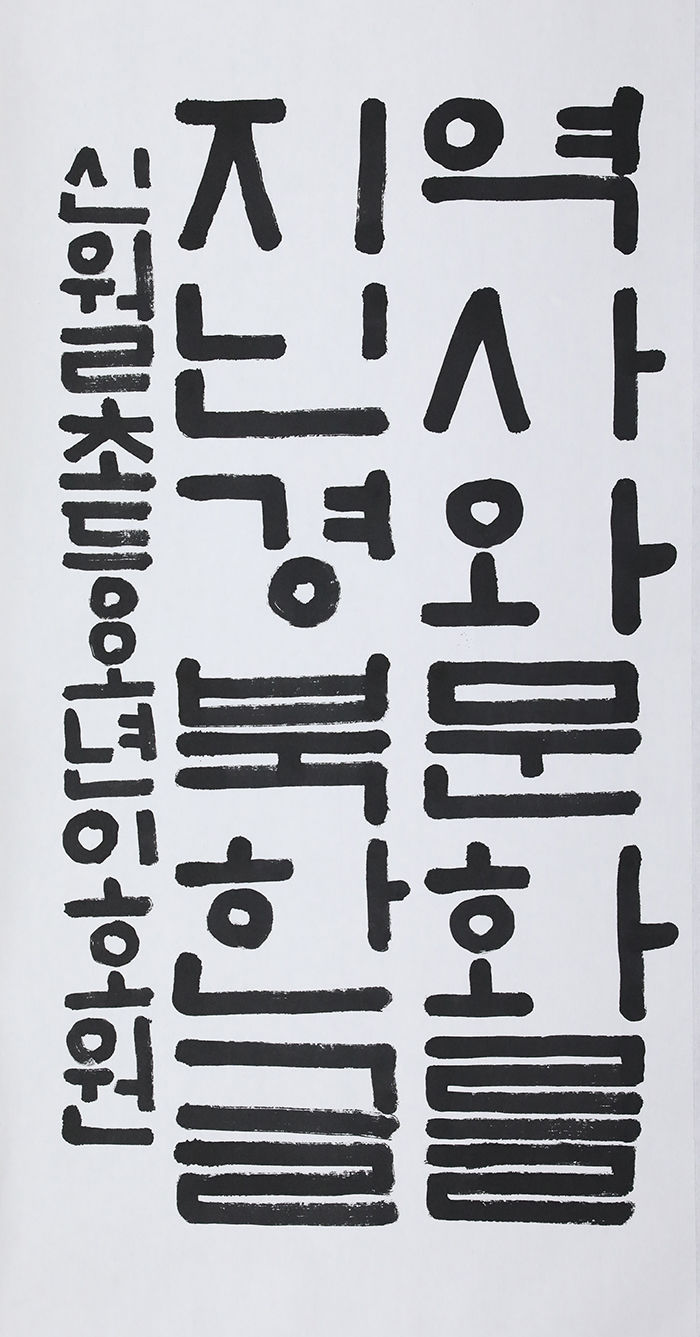 역사와문화를
지닌경북한글
신월초등오년이호원